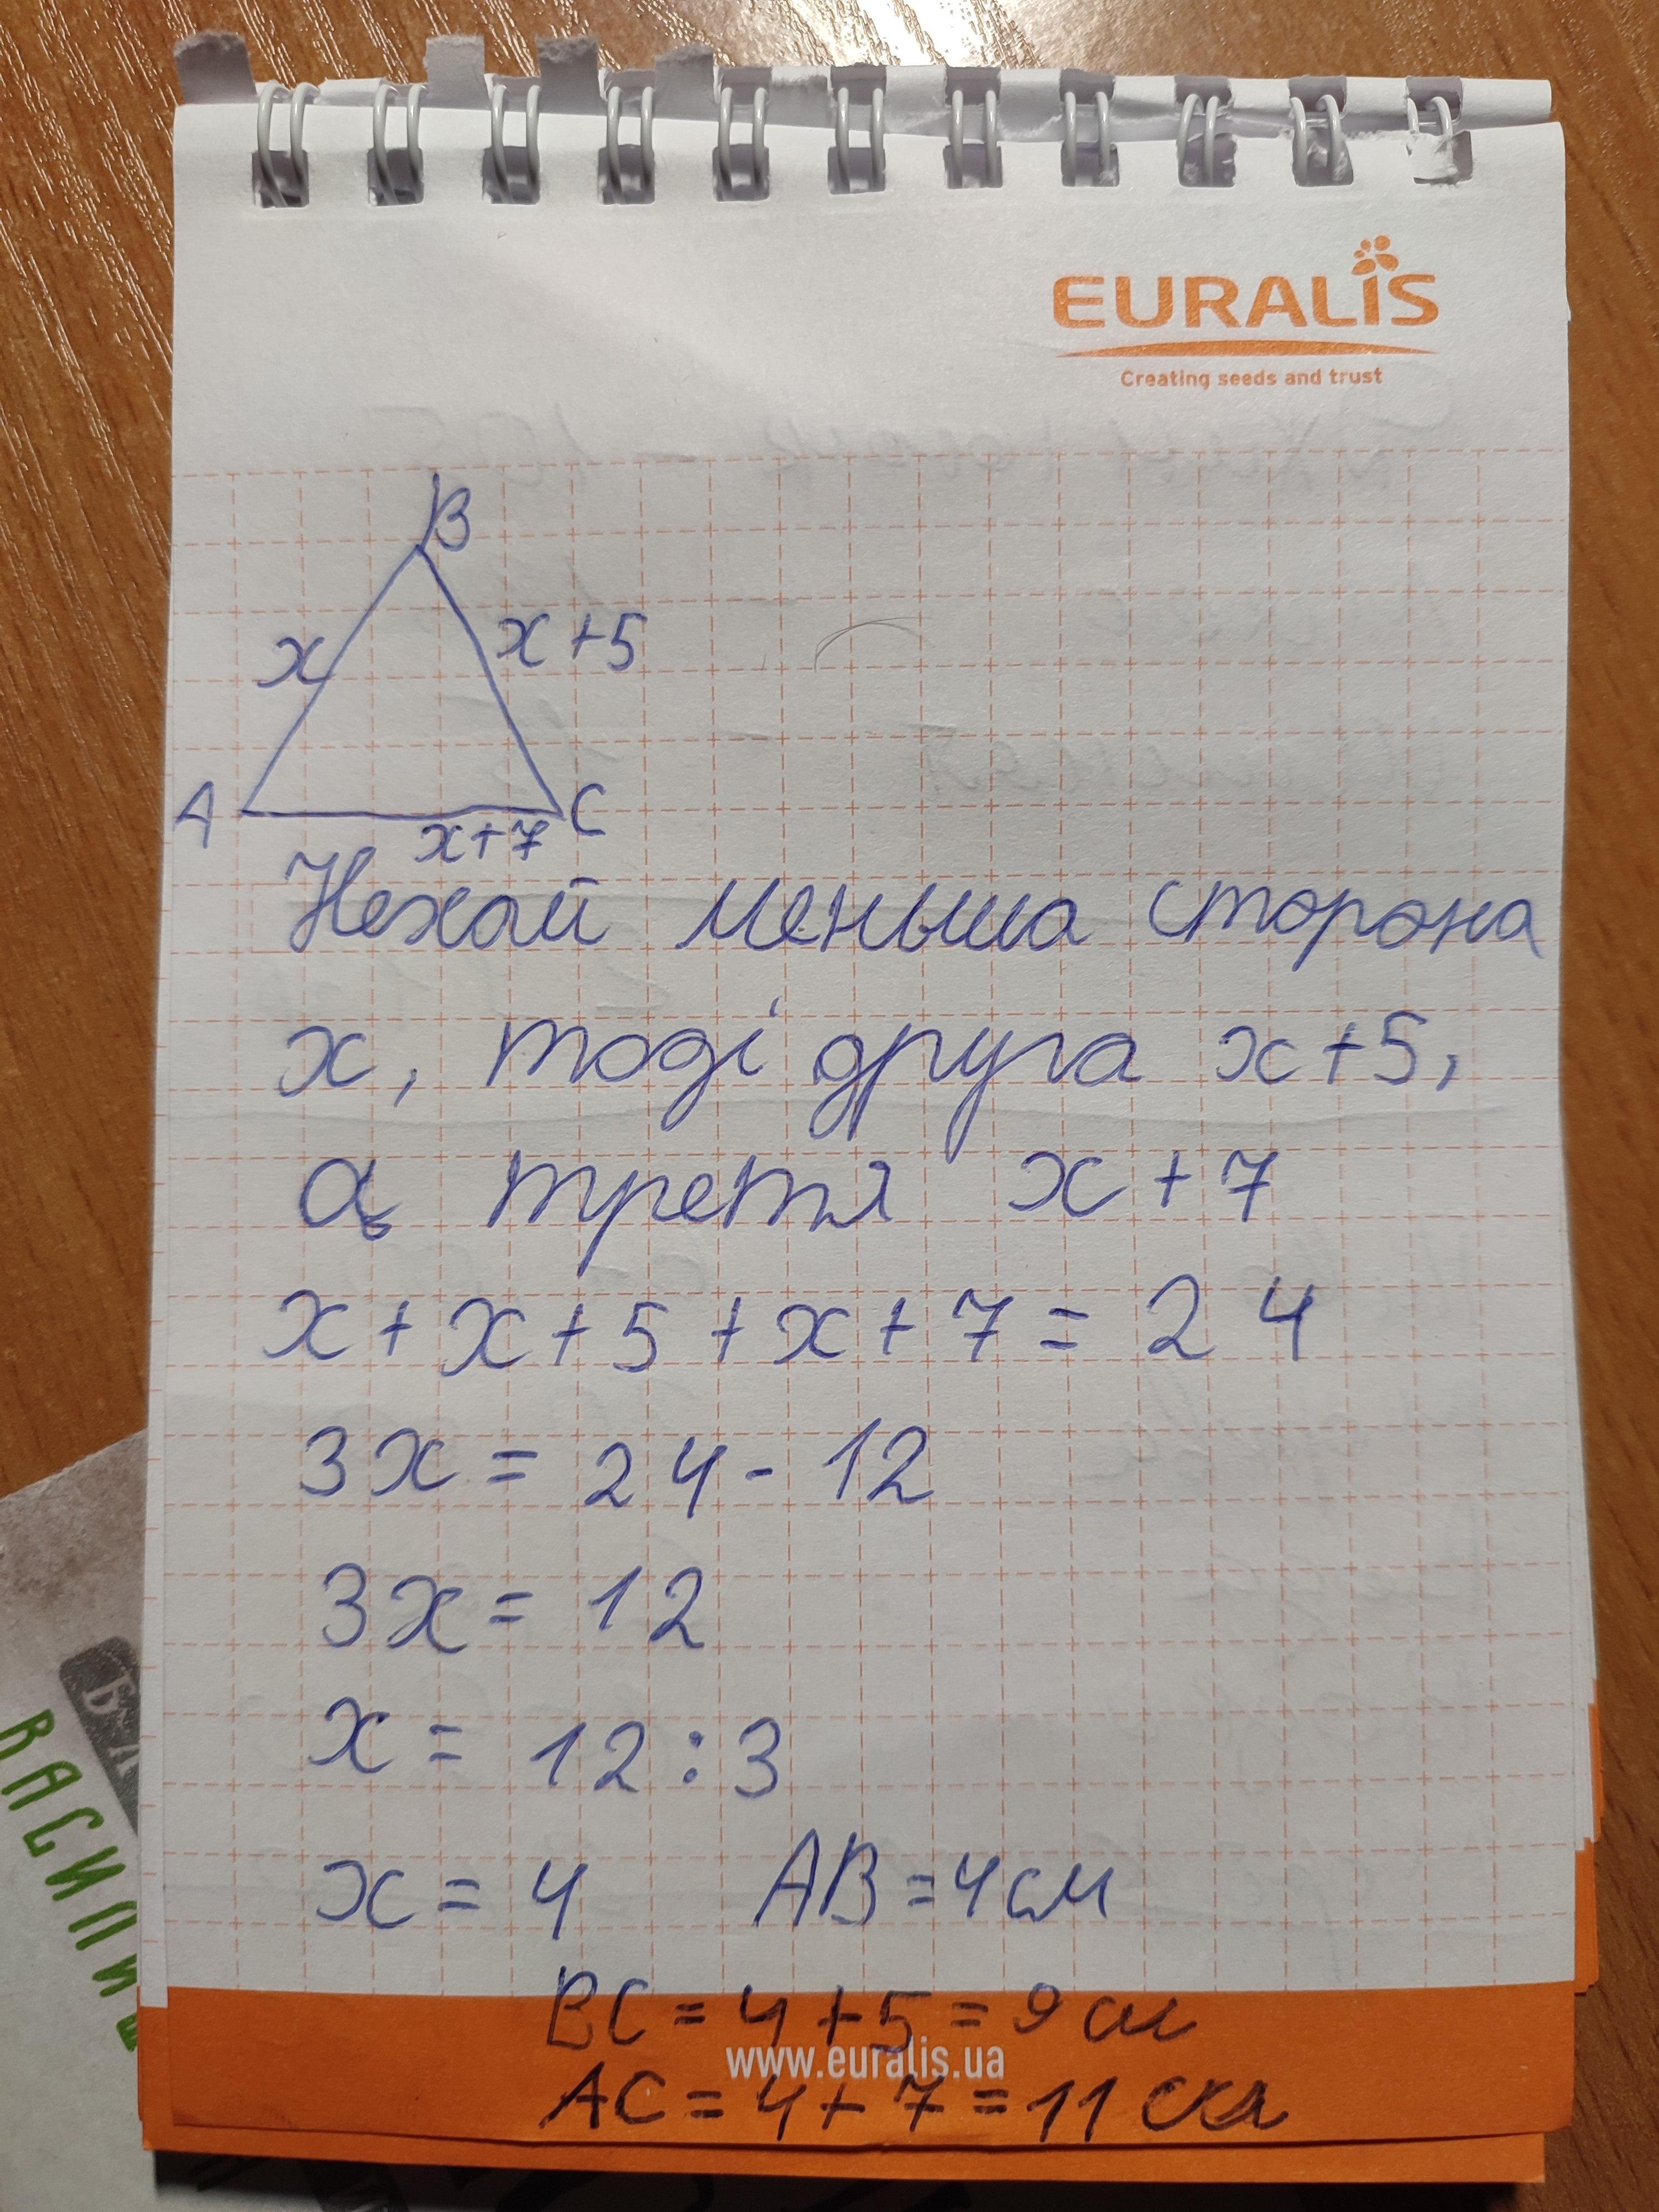 EURALIS
Creating seeds and trust
B
x
x+5
A
C
x+7
Нехай меньша сторона
x, тоді друга x+5,
а третя x+7
x+x+5+x+7=24
3x=24-12
3x=12
x=12:3
x=4 AB=4см
BC=4+5=9см
www.euralis.ua
AC=4+7=11см